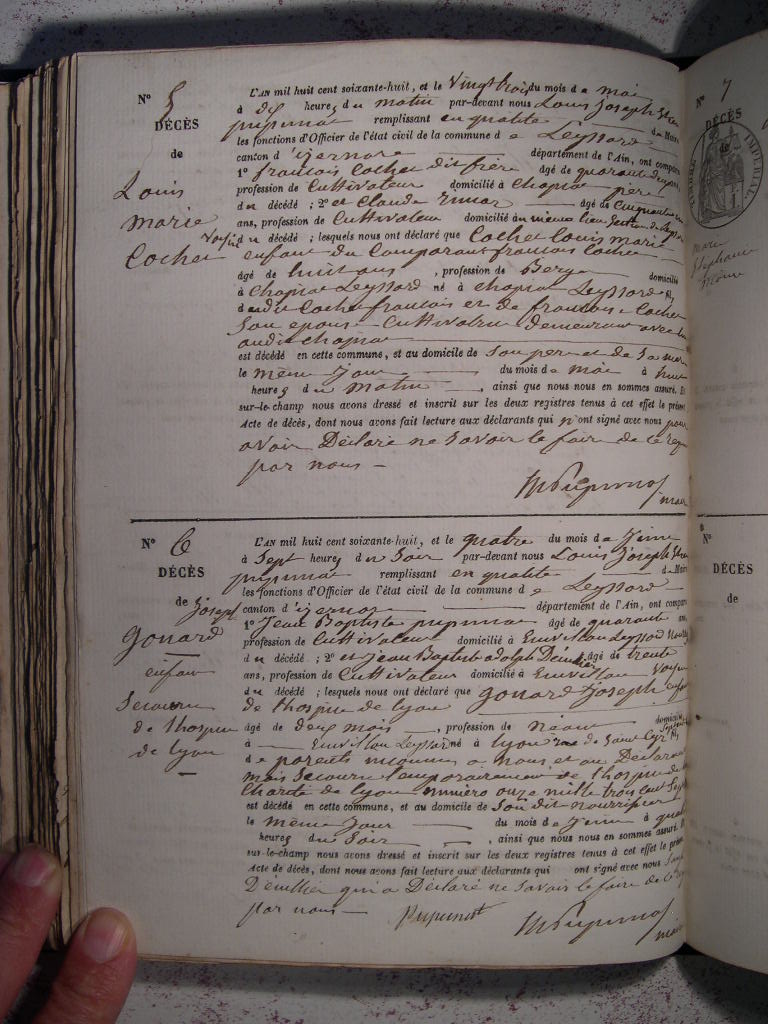 N° 5
DÉCÈS
de
Louis
marie
Cochet
L'AN mil huit cent soixante-huit, et le Vingt trois du mois de mai
à dix heures du matin par-devant nous Louis Joseph
remplissant en qualité de Maire
les fonctions d'Officier de l'état civil de la commune de Leyssard
canton d'izernore département de l'Ain, ont comparu
1° francois Cochet dit frère âgé de quarante
profession de Cultivateur domicilié à Chapiat père
du décédé ; 2° et Claude âgé de Cinquante
ans, profession de Cultivateur domicilié au même lieu
du décédé ; lesquels nous ont déclaré que Cochet louis marie
enfant du Comparant francois Cochet
âgé de huit ans , profession de Berger domicilié
à Chapiat Leyssard né à chapiat Leyssard fil
dudit Cochet francois et de
Son epouse Cultivateur demeurant avec lui
audit chapiat
est décédé en cette commune, et au domicile de Son pere et de Sa mere
le même jour du mois de mai à huit
heures du matin , ainsi que nous nous en sommes assuré. Et
sur-le-champ nous avons dressé et inscrit sur les deux registres tenus à cet effet le présent
Acte de décès, dont nous avons fait lecture aux déclarants qui n'ont signé avec nous pour
avoir Déclaré ne Savoir le faire de ce requis
par nous
maire
N° 6
DÉCÈS
de Joseph
gonard
enfant
Secouru
de l'hospice
de lyon
L'AN mil huit cent soixante-huit, et le quatre du mois de Juin
à Sept heures du Soir par-devant nous Louis Joseph
remplissant en qualité de Maire
les fonctions d'Officier de l'état civil de la commune de Leyssard
canton d'izernore département de l'Ain, ont comparu
1° Jean Baptiste âgé de quarante ans,
profession de Cultivateur domicilié à Leyssard
du décédé ; 2° et Jean Baptiste adolph âgé de trente
ans, profession de Cultivateur domicilié à Voisin
du décédé ; lesquels nous ont déclaré que gonard Joseph enfant
de l'hospice de lyon
âgé de deux mois , profession de Néant domicilié
à Leyssard né à lyon rue de Saint Cyr fil
de parents inconnus a nous et aux Déclarants
mais Secouru temporairement de l'hospice de la
Charité de lyon numéro onze mille trois cent Sept
est décédé en cette commune, et au domicile de Son dit nourricier
le même Jour du mois de Juin à quatre
heures du Soir , ainsi que nous nous en sommes assuré. Et
sur-le-champ nous avons dressé et inscrit sur les deux registres tenus à cet effet le présent
Acte de décès, dont nous avons fait lecture aux déclarants qui ont signé avec nous
qui a Déclaré ne Savoir le faire de ce
par nous
maire
N° 7
DÉCÈS
de
TIMBRE IMPÉRIAL
marie
Stephanie
N°
DÉCÈS
de